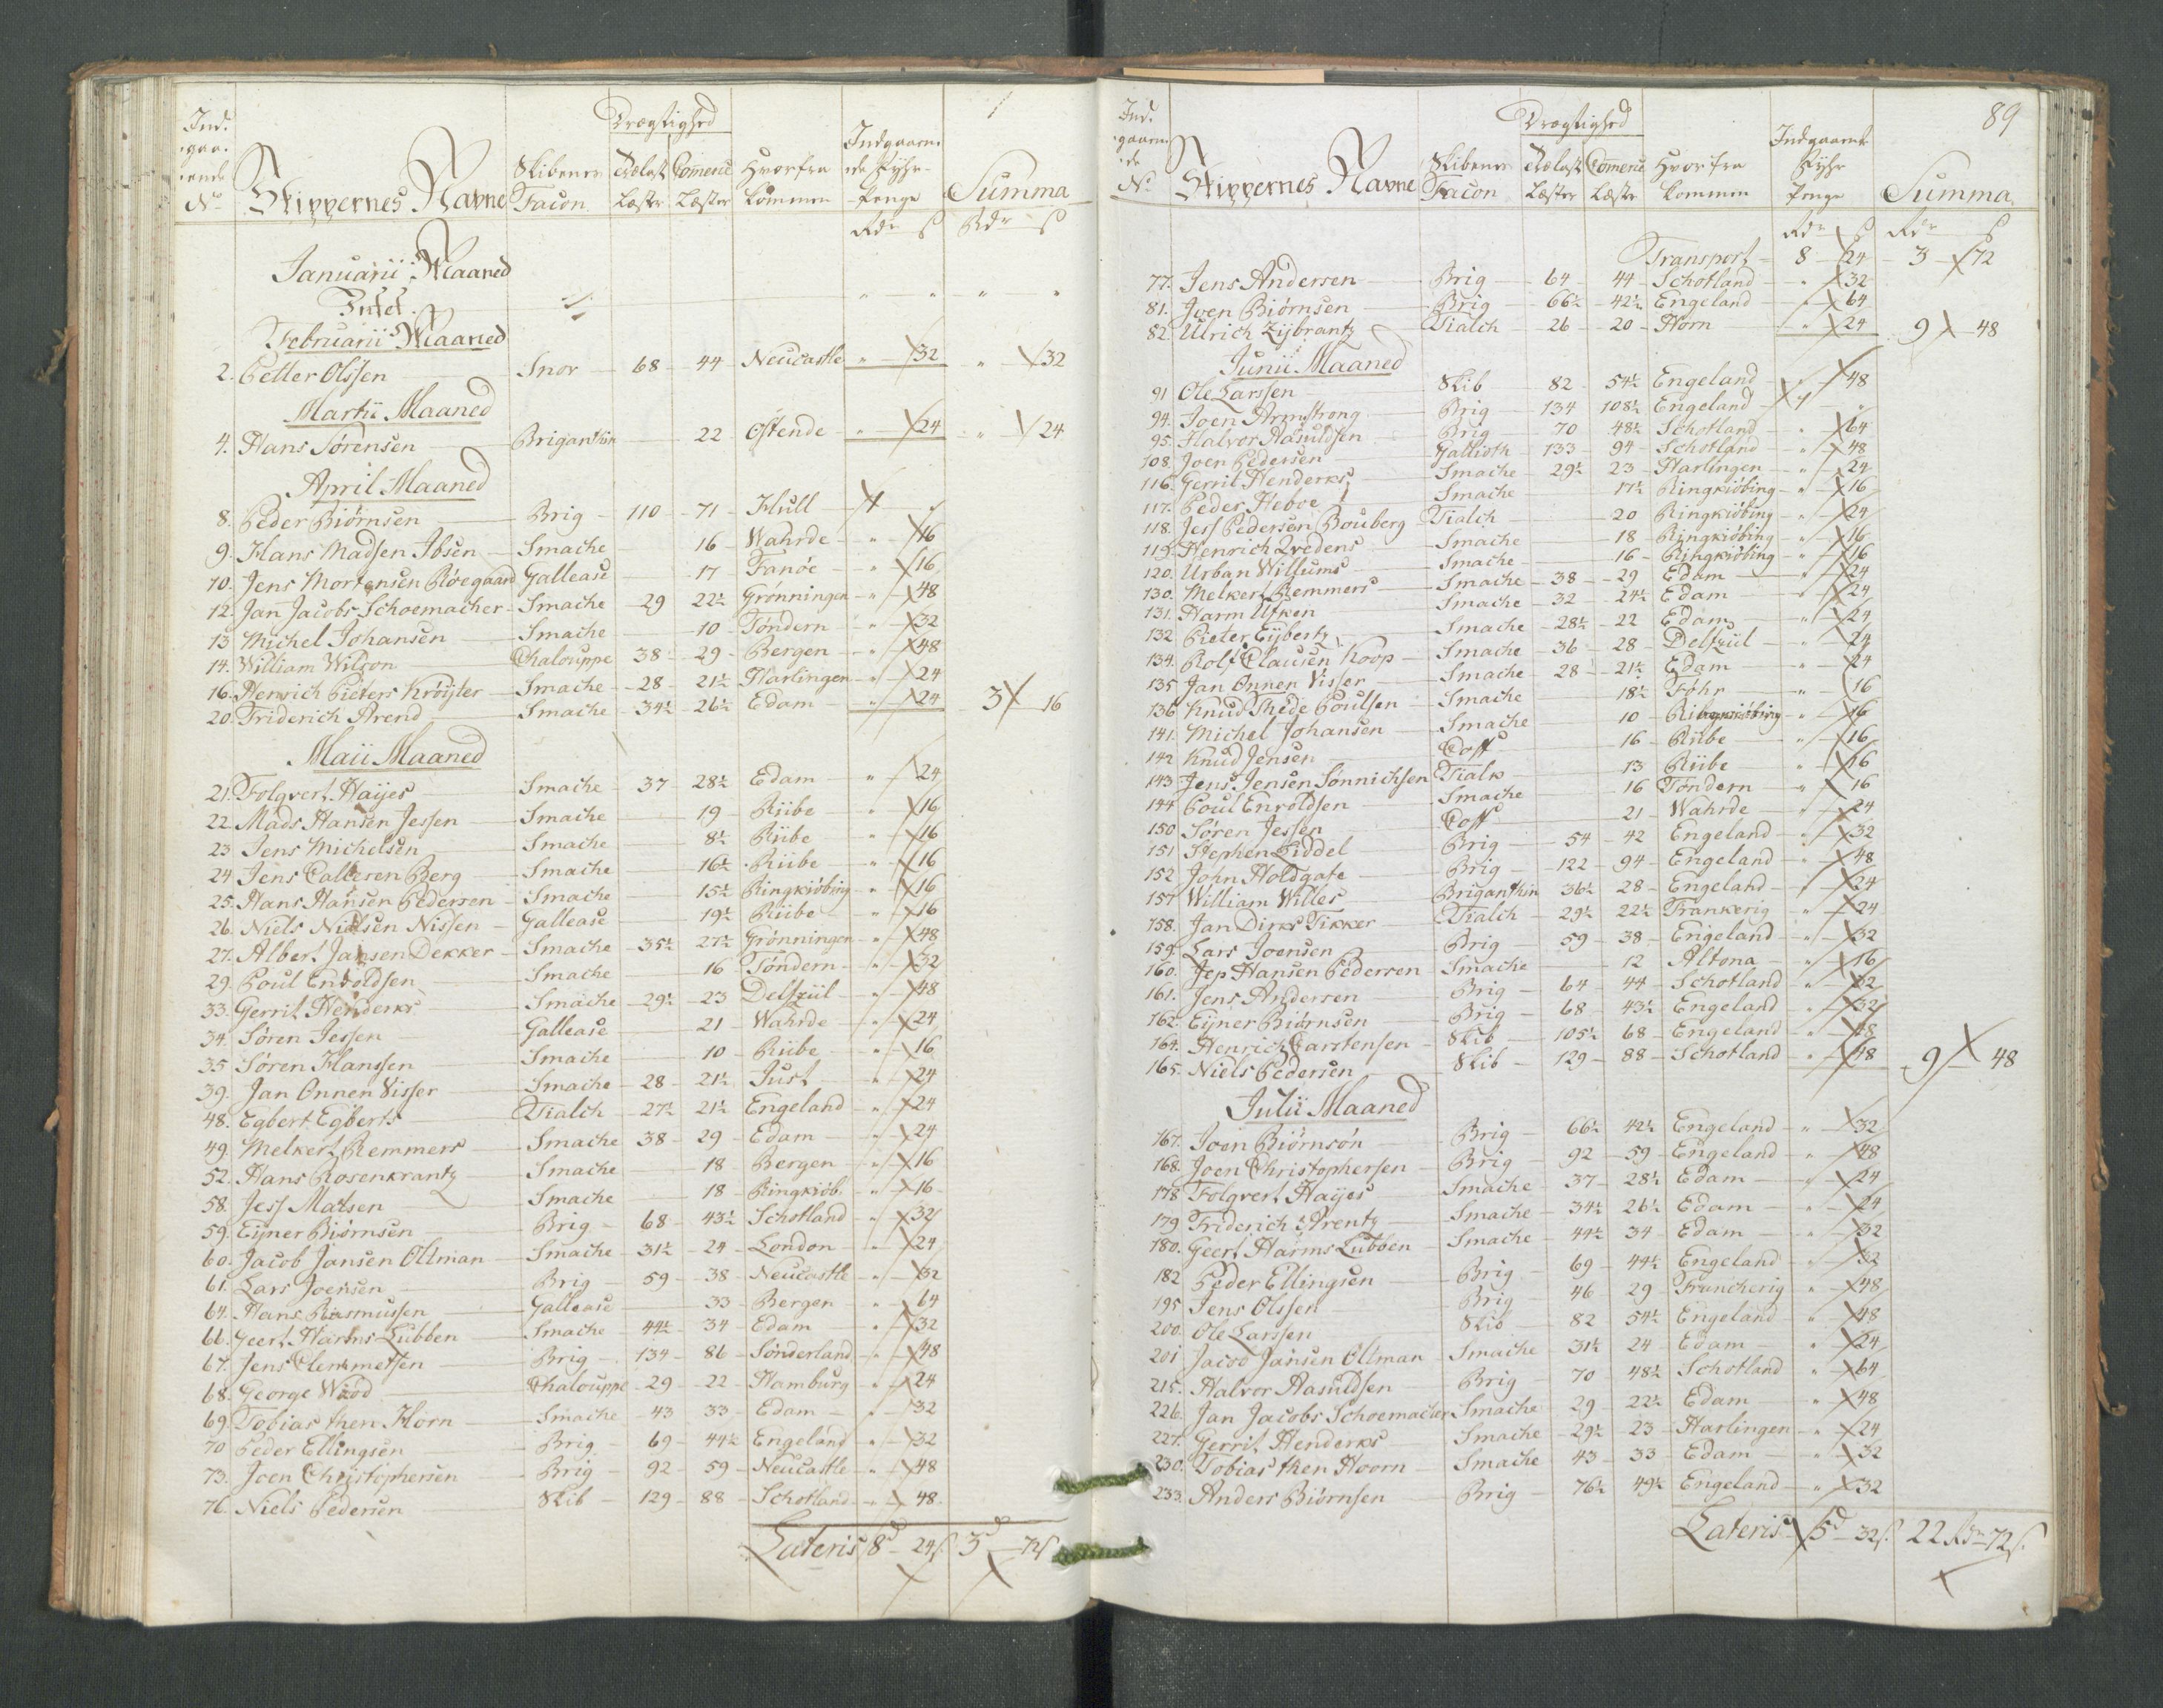 Ind. gaa. ende No | Skippernes Navne | Skibenes Facon | Drægtighed Trælast Læster | Comerce Læster | Hvorfra kommen | Indgaaende Fyhr-Penge Rdr ß | Summa Rdr ß
Januarii Maaned
Intet. " " " "
Februarii Maaned
2. Petter Olssen Snor 68 44 Neucastle " 32 " 32
Martii Maaned
4. Hans Sørensen Briganthin 22 Ostende " 24 " 24
April Maaned
8. Peder Biørnsen Brig 110 71 Hull 1 "
9. Hans Madsen Ibsen Smache 16 Wahrde " 16
10. Jens Mortensen Røegaard Gallease 17 Fanöe " 16
12. Jan Jacobs Schoemacher Smache 29 22½ Grønningen " 48
13 Michel Johansen Smache 10 Tøndern " 32
14. William Wilson Chalouppe 38 29 Bergen " 48
16. Henrich Pieters Krøijter Smache 28 21½ Harlingen " 24
20. Friderich Arend Smache 34½ 26½ Edam " 24 3 16
Maii Maaned
21. Folqvert Hayes Smache 37 28½ Edam " 24
22. Mads Hansen Jessen Smache 19 Riibe " 16
23 Jens Michelsen Smache 8½ Riibe " 16
24 Jens Callesen Berg Smache 16½ Riibe " 16
25. Hans Hansen Pedersen Smache 15½ Ringkiøbing " 16
26. Niels Nielsen Nissen Gallease 19½ Riibe " 16
27. Albert Jansen Dekker Smache 35½ 27½ Grønningen " 48
29. Poul Envoldsen Smache 16 Tøndern " 32
33. Gerrit Henderks Smache 29½ 23 Delfziil " 48
34. Søren Jessen Gallease 21 Wahrde " 24
35 Søren Hanssen Smache 10 Riibe " 16
39. Jan Onnen Visser Smache 28 21½ Just " 24
48. Egbert Egberts Tialch 27½ 21½ Engeland " 24
49. Melkert Remmers Smache 38 29 Edam " 24
52. Hans Rosenkrantz Smache 18 Bergen " 16
58. Jess Matsen Smache 18 Ringkiøb. " 16
59. Eijner Biørnsen Brig 68 43½ Schotland " 32
60. Jacob Jansen Oltman Smache 31½ 24 London " 24
61. Lars Joensen Brig 59 38 Neucastle " 32
64. Hans Rasmussen Gallease 33 Bergen " 64
66. Geert Harms Lubben Smache 44½ 34 Edam " 32
67. Jens Clemmetsen Brig 134 86 Sønderland " 48
68. George Wood Chalouppe 29 22 Hamburg " 24
69. Tobias then Horn Smache 43 33 Edam " 32
70 Peder Ellingsen Brig 69 44½ Engeland " 32
73. Joen Christophersen Brig 92 59 Neucastle " 48
76. Niels Pedersen Skib 129 88 Schotland " 48
Lateris 8d 24ß 3d 72ß
89
Ind. gaaen de No | Skippernes Navne | Skibenes Facon | Drægtighed Trælast Læster | Comerce Læster | Hvorfra kommen | Indgaaende Fyhr Penge Rdr ß | Summa Rdr ß
Transport 8 24 3 72
77. Jens Andersen Brig 64 44 Schotland " 32
81. Joen Biørnsen Brig 66½ 42½ Engeland " 64
82. Ulrich Zijbrantz Tialch 26 20 Horn " 24 9 48
Junii Maaned
91 Ole Larssen Skib 82 54½ Engeland " 48
94. Joen Armstrong Brig 134 108½ Engeland 1 "
95. Halvor Aasuldsen Brig 70 48½ Schotland " 64
108. Joen Pedersen Gallioth 133 94 Schotland " 48
116. Gerrit Henderks Smache 29½ 23 Harlingen " 24
117. Peder Heboe Smache 17½ Ringkiøbing " 16
118. Jess Pedersen Bouberg Tialch 20 Ringkiøbing " 24
119. Henrich Qvedens Smache 18 Ringkiøbing " 16
120. Urban Willums Smache 16 Ringkiøbing " 16
130. Melkert Remmers Smache 38 29 Edam " 24
131. Harm Ufken Smache 32 24½ Edam " 24
132 Pieter Eijbertz Smache 28½ 22 Edam " 24
134. Rolf Clausen Koop Smache 36 28 Delfziil " 24
135 Jan Onnen Visser Smache 28 21½ Edam " 24
136 Knud Thede Poulsen Smache 18½ Føhr " 16
141. Michel Johansen Smache 10 Ringkiøbing " 16
142 Knud Jensen Coff 16 Riibe " 16
143 Jens Jensen Sønnichsen Tialk 13 Riibe " 16
144 Poul Envoldsen Smache 16 Tøndern " 16
150 Søren Jessen Coff 21 Wahrde " 24
151 Stephen Liddel Brig 54 42 Engeland " 32
152 John Holdgate Brig 122 94 Engeland " 48
157 William Willes Briganthin 36½ 28 Engeland " 24
158. Jan Dirks Fikker Tialch 29½ 22½ Frankerig " 24
159. Lars Joensen Brig 59 38 Engeland " 32
160. Jep Hansen Pedersen Smache 12 Altona " 16
161. Jens Andersen Brig 64 44 Schotland " 32
162. Eijner Biørnsen Brig 68 43½ Engeland " 32
164. Henrich Carstensen Skib 105½ 68 Engeland " 48
165. Niels Pedersen Skib 129 88 Schotland " 48 9 48
Julii Maaned
167. Joen Biørnsøn Brig 66½ 42½ Engeland " 32
168. Joen Christophersen Brig 92 59 Engeland " 48
178 Folqvert Hayes Smache 37 28½ Edam " 24
179 Friderich Arentz Smache 34½ 26½ Edam " 24
180. Geert Harms Lubben Smache 44½ 34 Edam " 32
182 Peder Ellingsen Brig 69 44½ Engeland " 32
195 Jens Olssen Brig 46 29 Franckerig " 48
200. Ole Larssen Skib 82 54½ Engeland " 48
201 Jacob Jansen Oltman Smache 31½ 24 Edam " 24
215. Halvor Aasuldsen Brig 70 48½ Schotland " 64
226. Jan Jacobs Schoemacher Smache 29 22½ Edam " 48
227. Gerrit Henderks Smache 29½ 23 Harlingen " 24
230. Tobias then Hoorn Smache 43 33 Edam " 32
233. Anders Biørnsen Brig 76½ 49½ Engeland " 32
Lateris 5d 32ß. 22 Rdr 72ß.